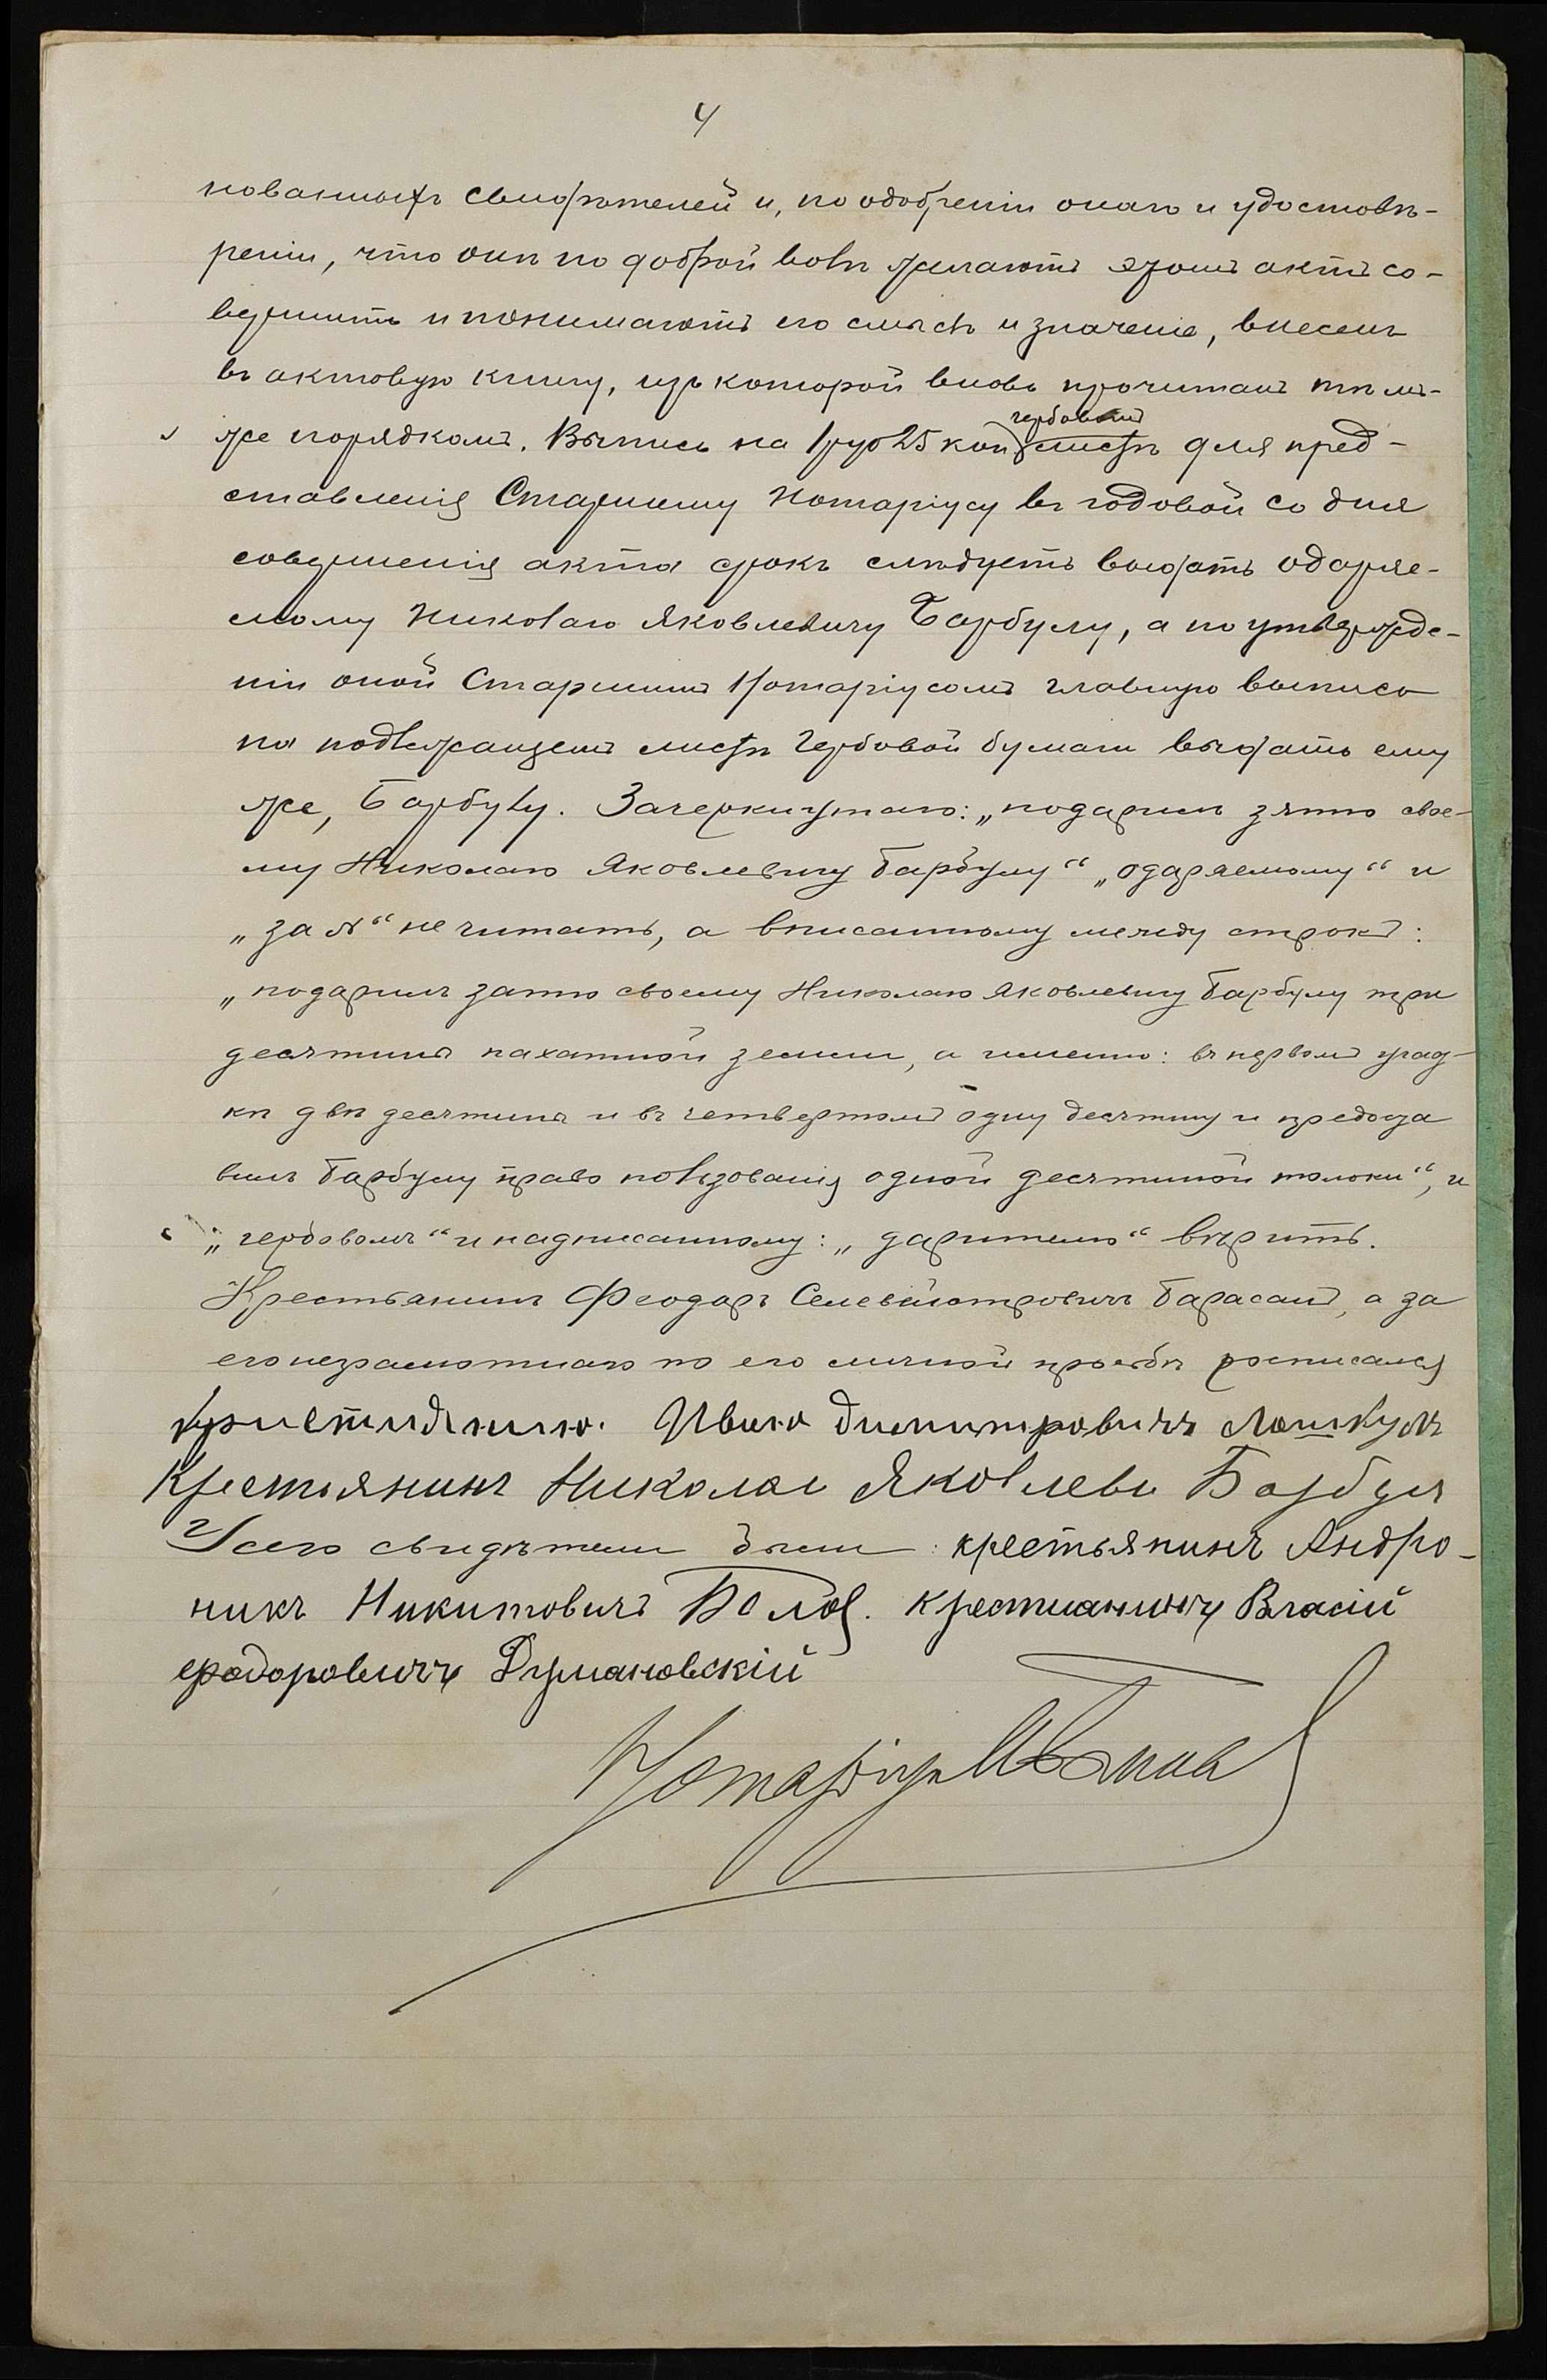 4
нованныхъ свидѣтелей и, по одобреніи онаго и удостовѣ-
реніи, что они по доброй волѣ желаютъ этотъ актъ со-
вершить и понимаютъ его смыслъ и значеніе, внесенъ
въ актовую книгу, изъ которой вновь прочитанъ тѣмъ-
гербовомъ
же порядкомъ. Выпись на 1 руб 25 коп листѣ для пред-
ставленія Старшему Нотаріусу въ годовой со дня
совершенія акта срокъ слѣдуетъ выдать одаряе-
мому Николаю Яковлевичу Барбулу, а по утвержде-
ніи оной Старшимъ Нотаріусомъ главную выпись
на подлежащемъ листѣ гербовой бумаги выдать ему
же, Барбулу. Зачеркнутаго: „подарилъ зятю свое-
му Николаю Яковлевичу Барбулу“ „одаряемому“ и
не читать, а вписанному между строкъ:
„подарилъ зятю своему Николаю Яковлевичу Барбулу три
десятины пахатной земли, а именно: въ первомъ учас-
кѣ двѣ десятины и въ четвертомъ одну десятину и предоста
вилъ Барбулу право пользованія одной десятиной толоки“, и
„гербовомъ“ и надписанному: „дарителю“ вѣрить.
Крестьянинъ Феодоръ Барасанъ, а за
его неграмотнаго по его личной просьбѣ росписался
Иванъ Димитровичъ Лошкулъ
Крестьянинъ Николаи Яковлевъ Барбулъ
У сего свидѣтели были: крестьянинъ Андро-
никъ Никитовичъ Крестианинъ Власій
Федоровичъ Думановскій
Нотаріусъ